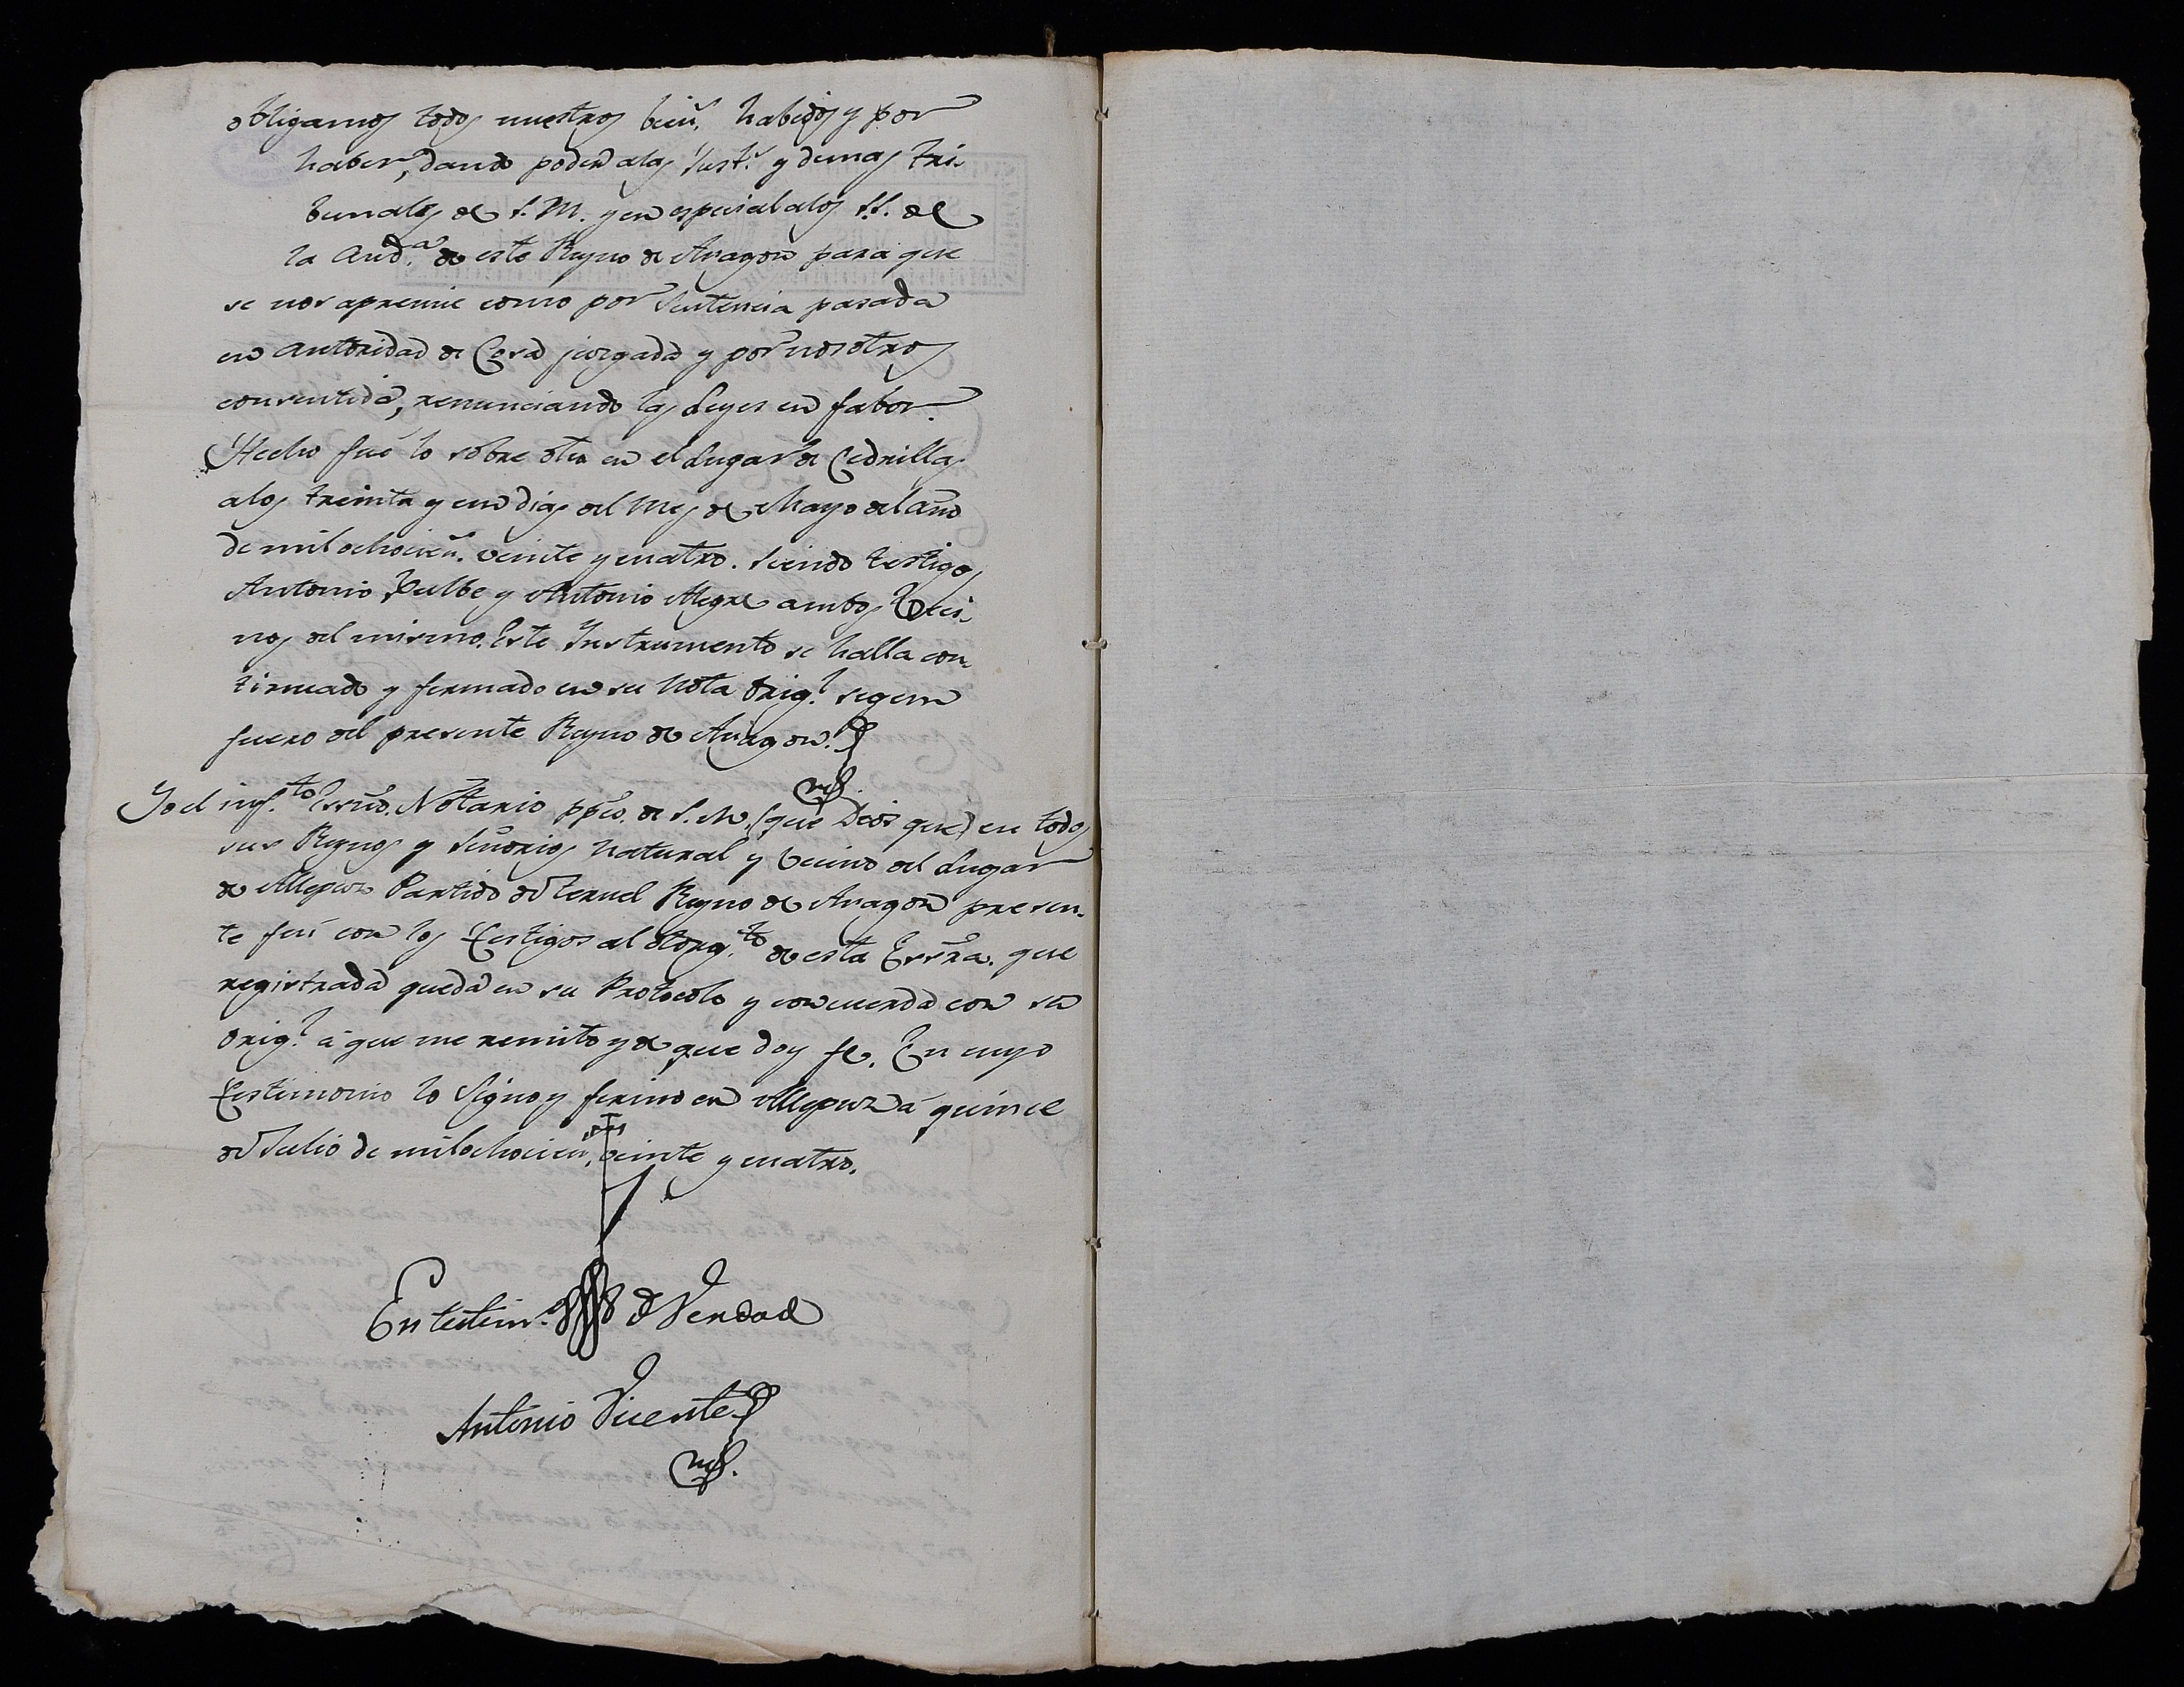 obligamos todos nuestros bien.s habidos y por
haber, dando poder a las Just.s y demas tri-
bunales de S. M. y en especial a los S.S. de
la Aud.a de este Reyno de Aragon para que
se nos apremie como por Sentencia pasada
en autoridad de Cosa juzgada y por nosotros
consentida, renunciando las Leyes en fabor.
Hecho fué lo sobre dho en el Lugar de Cedrillas
a los treinta y un dias del Mes de Mayo del año
de mil ochocien.s veinte y cuatro. Siendo testigos
Antonio y Antonio Alegre ambos Veci-
nos del mismo. Este Instrumento se halla con-
tinuado y firmado en su Nota Orig.l segun
fuero del presente Reyno de Aragon.
Yo el inf.to Essno. Notario ppco. de S. M. (que Dios gue) en todos
sus Reynos y Señorios natural y Vecino del Lugar
de Allepuz Partido de Teruel Reyno de Aragon presen-
te fui con los testigos al otorg.to de esta Essra. que
registrada queda en su Protocolo y concuerda con su
Orig.l á que me remito y de que doy fe. En cuyo
testimonio lo Signo y firmo en Allepuz á quince
de Julio de mil ochocien.s veinte y cuatro.
En testim.o de Verdad
Antonio Vicente